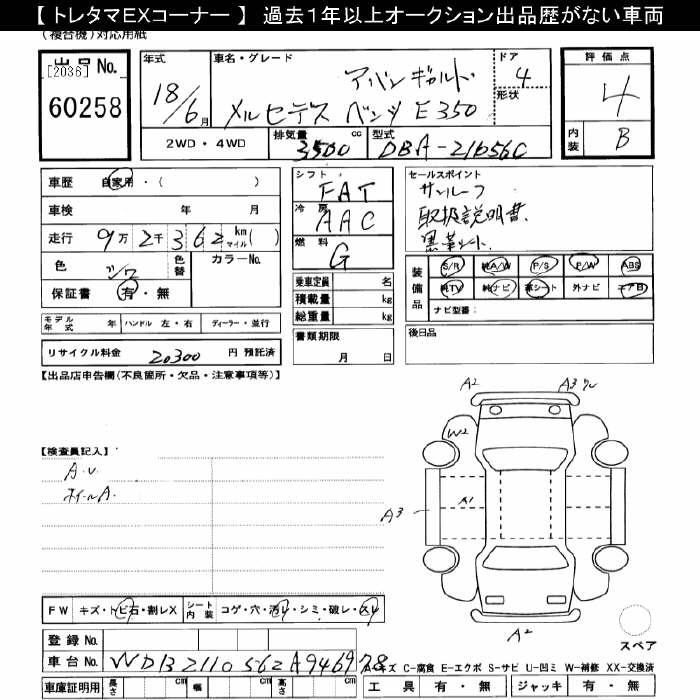 【 トレタマEXコーナー 】 過去1年以上オークション出品歴がない車両
(複合機)対応用紙
出品No.
[2036]
60258
年式
18/6月
車名・グレード
アバンギャルド
メルセデス ベンツ E350
ドア
4
形状
評価点
4
内装
B
2WD・4WD
排気量
3500
cc
型式
DBA-211056C
車歴
自家用・( )
車検
年 月
走行
9万2千362
km
マイル
( )
色
色替
カラーNo.
保証書
有・無
シフト
FAT
冷房
AAC
燃料
G
乗車定員 名
積載量 kg
総重量 kg
セールスポイント
サンルーフ
取扱説明書
黒革シート
装備品
S/R
純A/W
P/S
P/W
ABS
純TV
純ナビ
革シート
外ナビ
エアB
ナビ型番:
モデル年式 年
ハンドル 左・右
ディーラー・並行
書類期限
月 日
後日品
リサイクル料金 20300 円 預託済
【出品店申告欄(不良箇所・欠品・注意事項等)】
【検査員記入】
A.U
ホイールA.
A2
A3
W2
A1
A3
A2
スペア
FW
キズ・トビ石・割レX
シート内装
コゲ・穴・汚レ・シミ・破レ・スレ
登録No.
車台No.
WDB2110562A946978
A-キズ C-腐食 E-エクボ S-サビ U-凹ミ W-補修 XX-交換済
車庫証明用
長さ cm
幅 cm
高さ cm
工具 有・無
ジャッキ 有・無